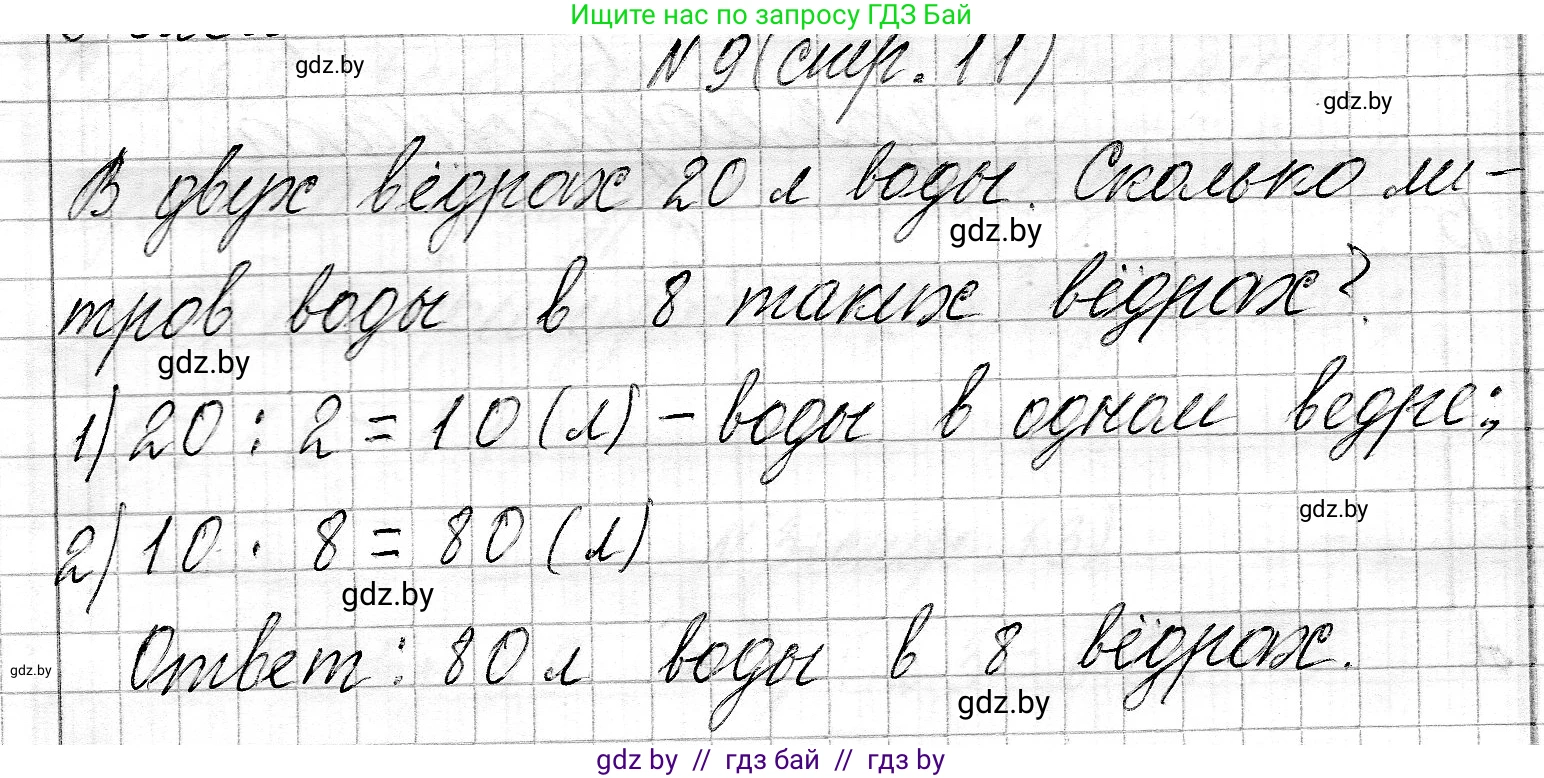 Ищите нас по запросу ГДЗ Бай
gdz.by
N 9 (стр. 11)
gdz.by
В двух вёдрах 20 л воды. Сколько ли-
gdz.by
тров воды в 8 таких вёдрах?
gdz.by
1) 20 : 2 = 10 (л) - воды в одном ведре;
gdz.by
2) 10 · 8 = 80 (л)
gdz.by
Ответ: 80 л воды в 8 вёдрах.
gdz.by
gdz.by
gdz by // гдз бай // гдз by